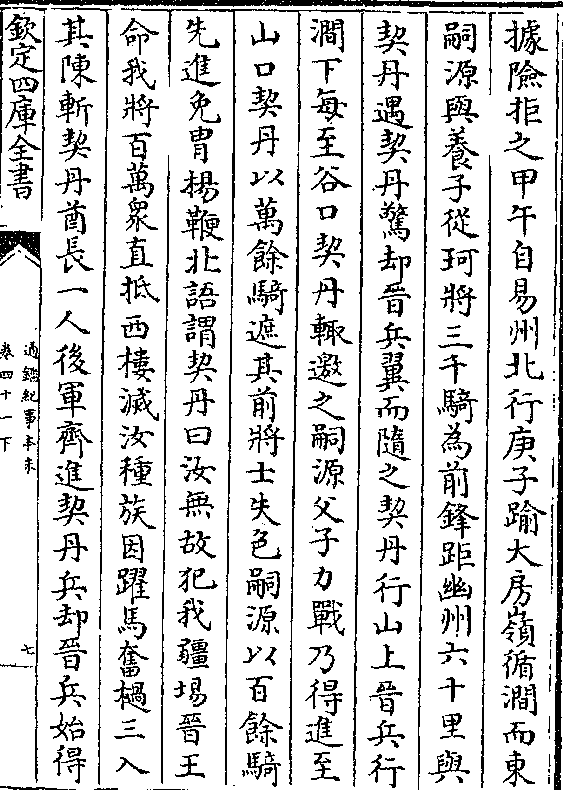 據險拒之甲午自易州北行庚子踰大房嶺循澗而東
嗣源與養子從珂將三千騎為前鋒距幽州六十里與
契丹遇契丹驚却晉兵翼而隨之契丹行山上晉兵行
澗下每至谷口契丹輒邀之嗣源父子力戰乃得進至
山口契丹以萬餘騎遮其前將士失色嗣源以百餘騎
先進免胄揚鞭北語謂契丹曰汝無故犯我疆埸晉王
命我將百萬衆直抵西樓滅汝種族因躍馬奮檛三入
其陳斬契丹酋長一人後軍齊進契丹兵却晉兵始得
欽定四庫全書
通鑑紀事本末
卷四十一下
七